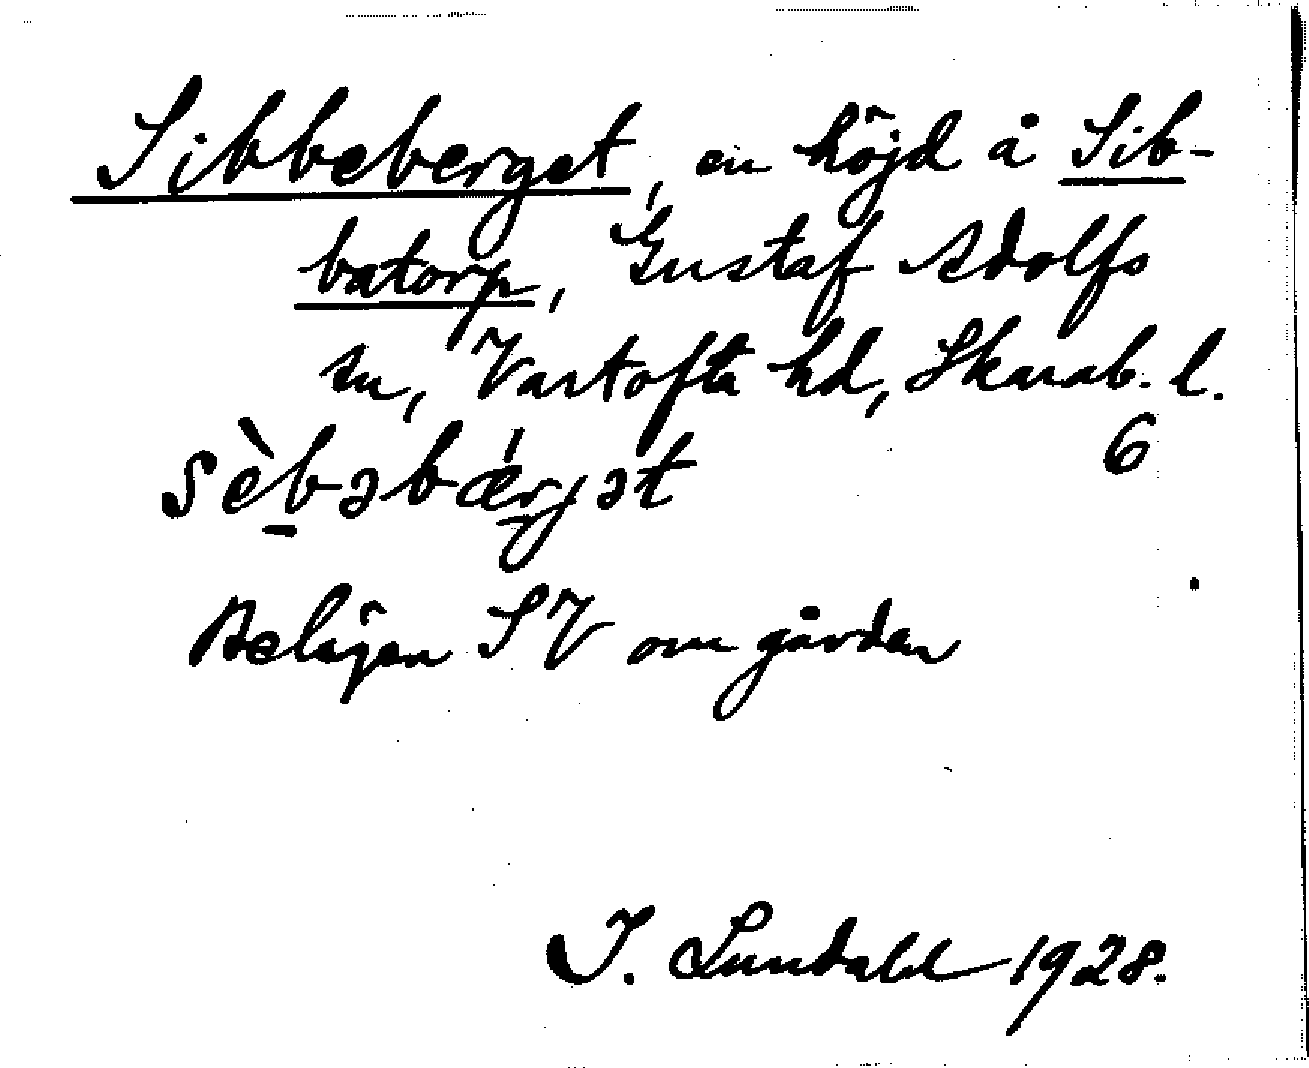 Sibbeberget, en höjd å Sib-
batorp, Gustaf Adolfs
sn, Vartofta hd, Skarab. l.
6
sèb̲əbærgət
Belägen SV om gården
I. Lundahl 1928.